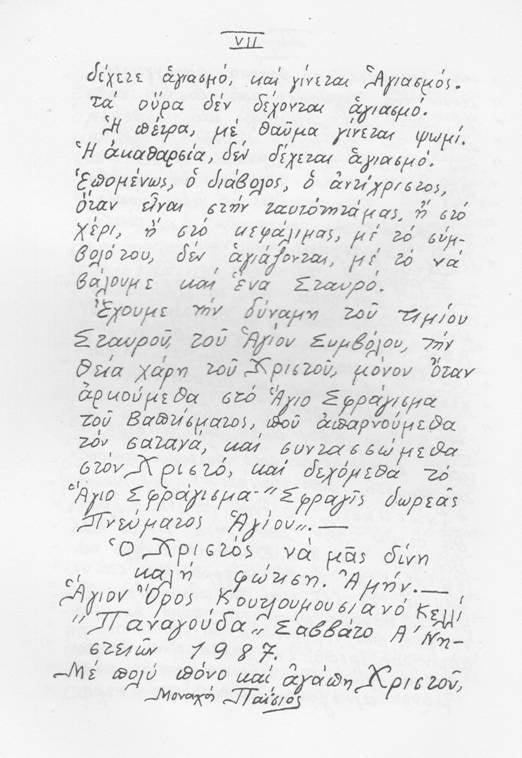 VII
δέχετε ἁγιασμό, καί γίνεται Ἁγιασμός.
τά οὔρα δέν δέχονται ἁγιασμό.
Ἡ πέτρα, μέ θαῦμα γίνεται ψωμί.
Ἡ ἀκαθαρσία, δέν δέχεται ἁγιασμό.
Ἑπομένως, ὁ διάβολος, ὁ ἀντίχριστος,
ὅταν εἶναι στήν ταυτότητάμας, ἤ στό
χέρι, ἤ στό κεφάλιμας, μέ τό σύμ-
βολότου, δέν ἁγιάζονται, μέ τό νά
βάλουμε καί ἕνα Σταυρό.
Ἔχουμε τήν δύναμη τοῦ τιμίου
Σταυροῦ, τοῦ Ἁγίου Συμβόλου, τήν
θεία χάρη τοῦ Χριστοῦ, μόνον ὅταν
ἀρκούμεθα στό Ἅγιο Σφράγισμα
τοῦ Βαπτίσματος, πού ἀπαρνούμεθα
τόν σατανά, καί συντασσώμεθα
στόν Χριστό, καί δεχόμεθα τό
Ἅγιο Σφράγισμα-"Σφραγίς δωρεᾶς
Πνεύματος Ἁγίου".—
Ὁ Χριστός νά μᾶς δίνη
καλή φώτιση. Ἀμήν.—
Ἅγιον Ὄρος Κουτλουμουσιανό Κελλί
"Παναγούδα" Σάββατο Α΄ Νη-
στειῶν 1987
Μέ πολύ πόνο καί ἀγάπη Χριστοῦ,
Μοναχός Παΐσιος